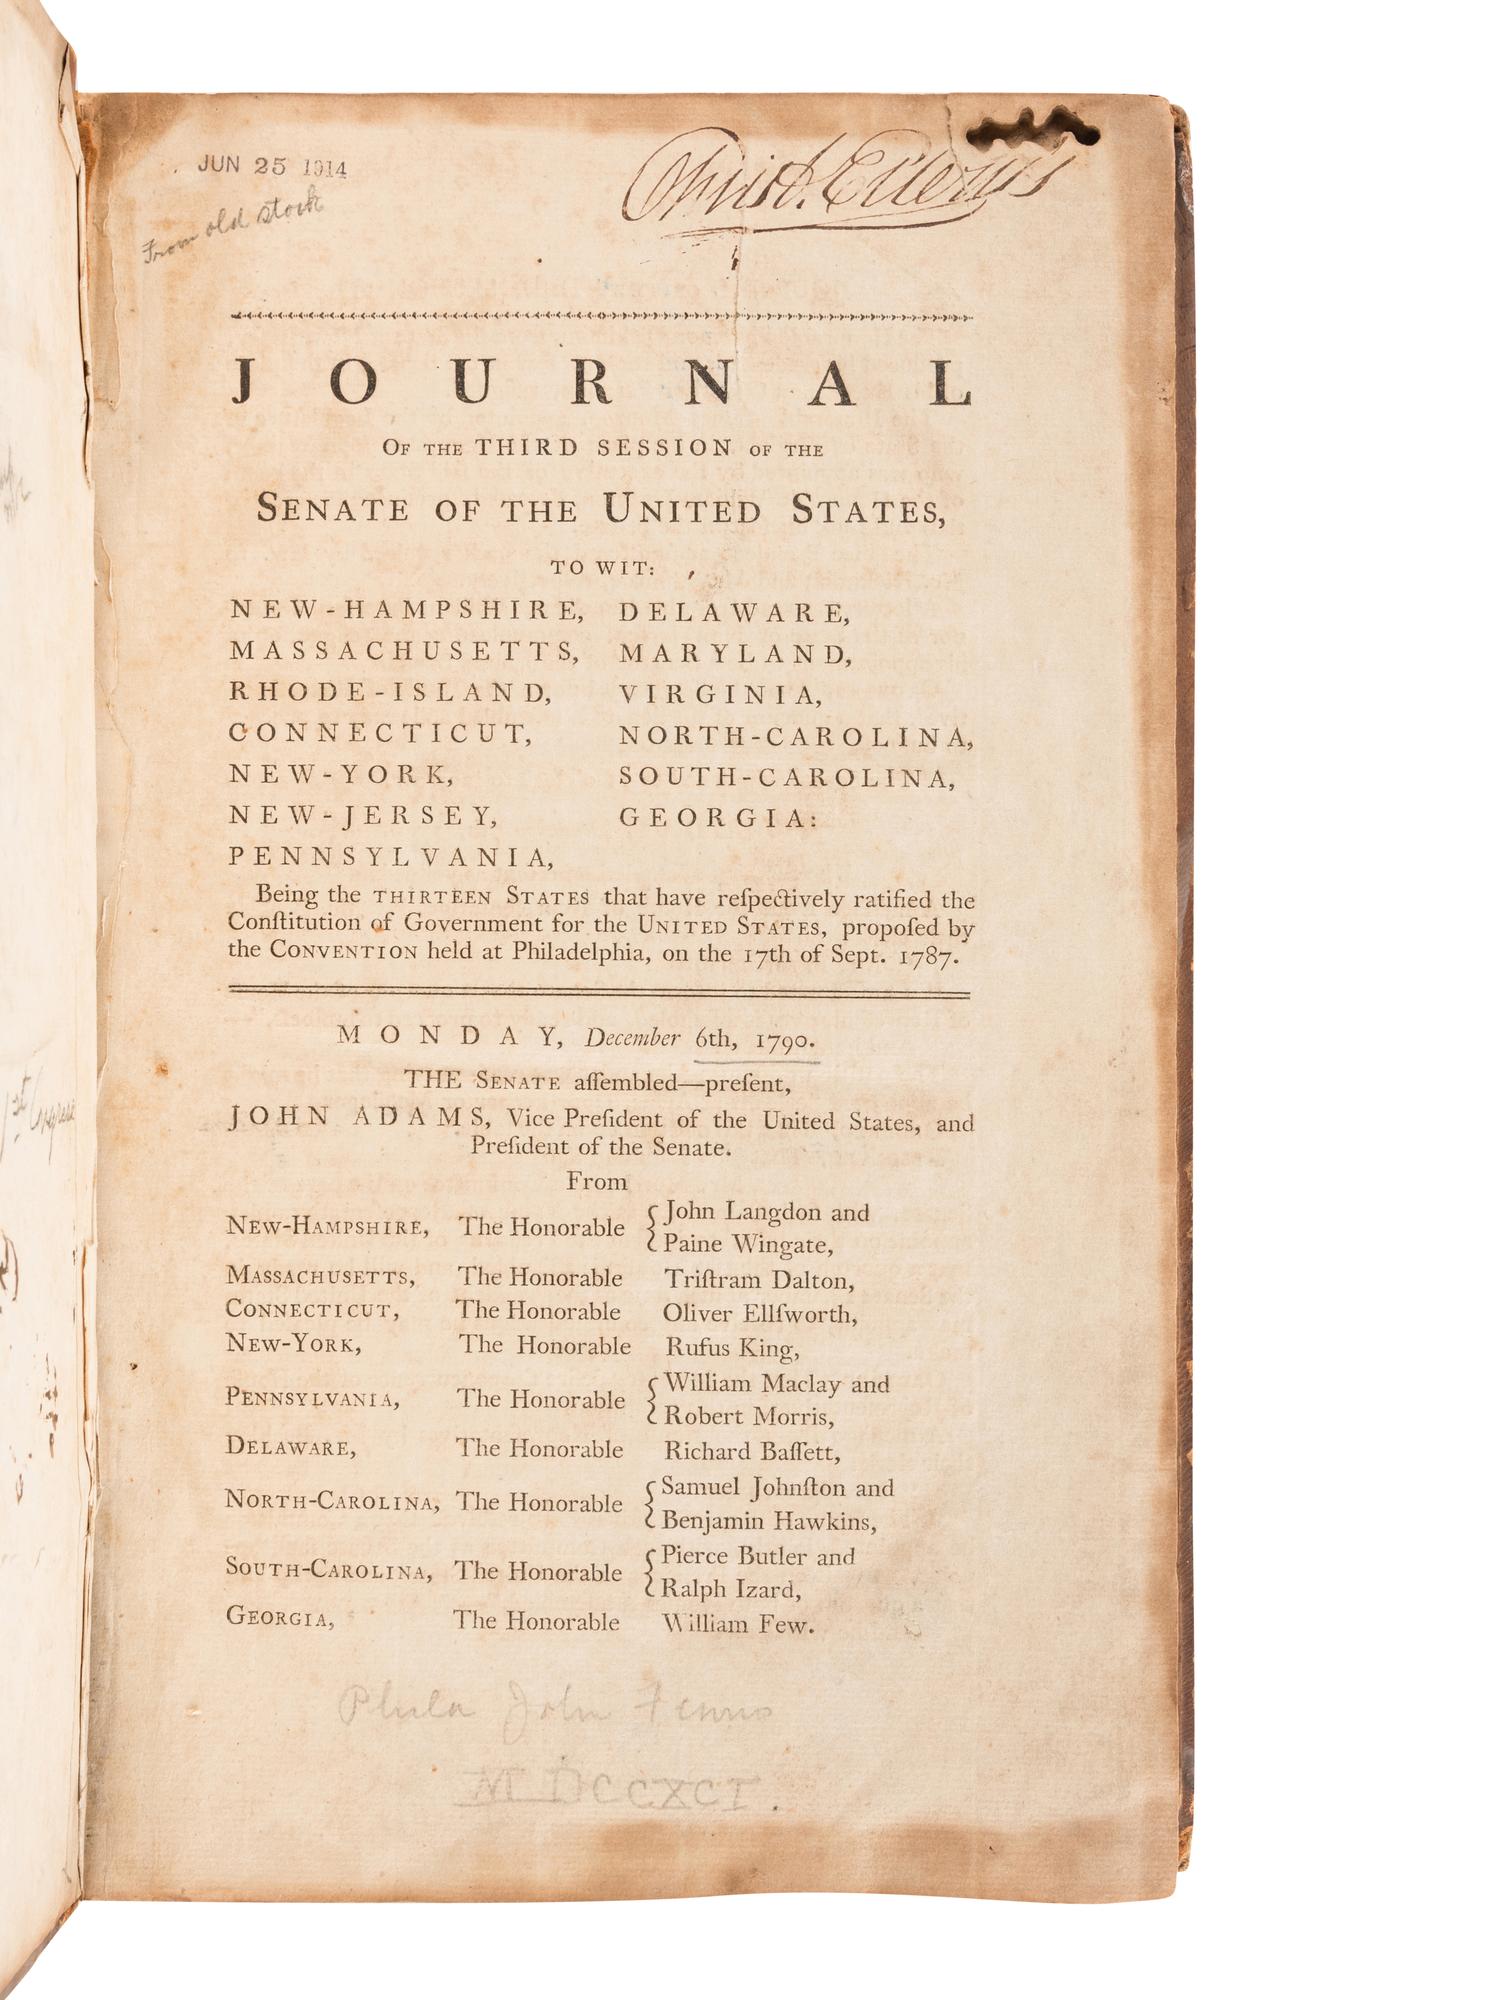 JUN 25 1914
From old stock
Christ. Ellery's
JOURNAL
OF THE THIRD SESSION OF THE
SENATE OF THE UNITED STATES,
TO WIT:
NEW-HAMPSHIRE, DELAWARE,
MASSACHUSETTS, MARYLAND,
RHODE-ISLAND, VIRGINIA,
CONNECTICUT, NORTH-CAROLINA,
NEW-YORK, SOUTH-CAROLINA,
NEW-JERSEY, GEORGIA:
PENNSYLVANIA,
Being the THIRTEEN STATES that have reſpectively ratified the
Conſtitution of Government for the UNITED STATES, propoſed by
the CONVENTION held at Philadelphia, on the 17th of Sept. 1787.
MONDAY, December 6th, 1790.
THE SENATE aſſembled—preſent,
JOHN ADAMS, Vice Preſident of the United States, and
Preſident of the Senate.
From
NEW-HAMPSHIRE, The Honorable { John Langdon and
Paine Wingate,
MASSACHUSETTS, The Honorable Triſtram Dalton,
CONNECTICUT, The Honorable Oliver Ellſworth,
NEW-YORK, The Honorable Rufus King,
PENNSYLVANIA, The Honorable { William Maclay and
Robert Morris,
DELAWARE, The Honorable Richard Baſſett,
NORTH-CAROLINA, The Honorable { Samuel Johnſton and
Benjamin Hawkins,
SOUTH-CAROLINA, The Honorable { Pierce Butler and
Ralph Izard,
GEORGIA, The Honorable William Few.
Phila John Fenno
MDCCXCI.